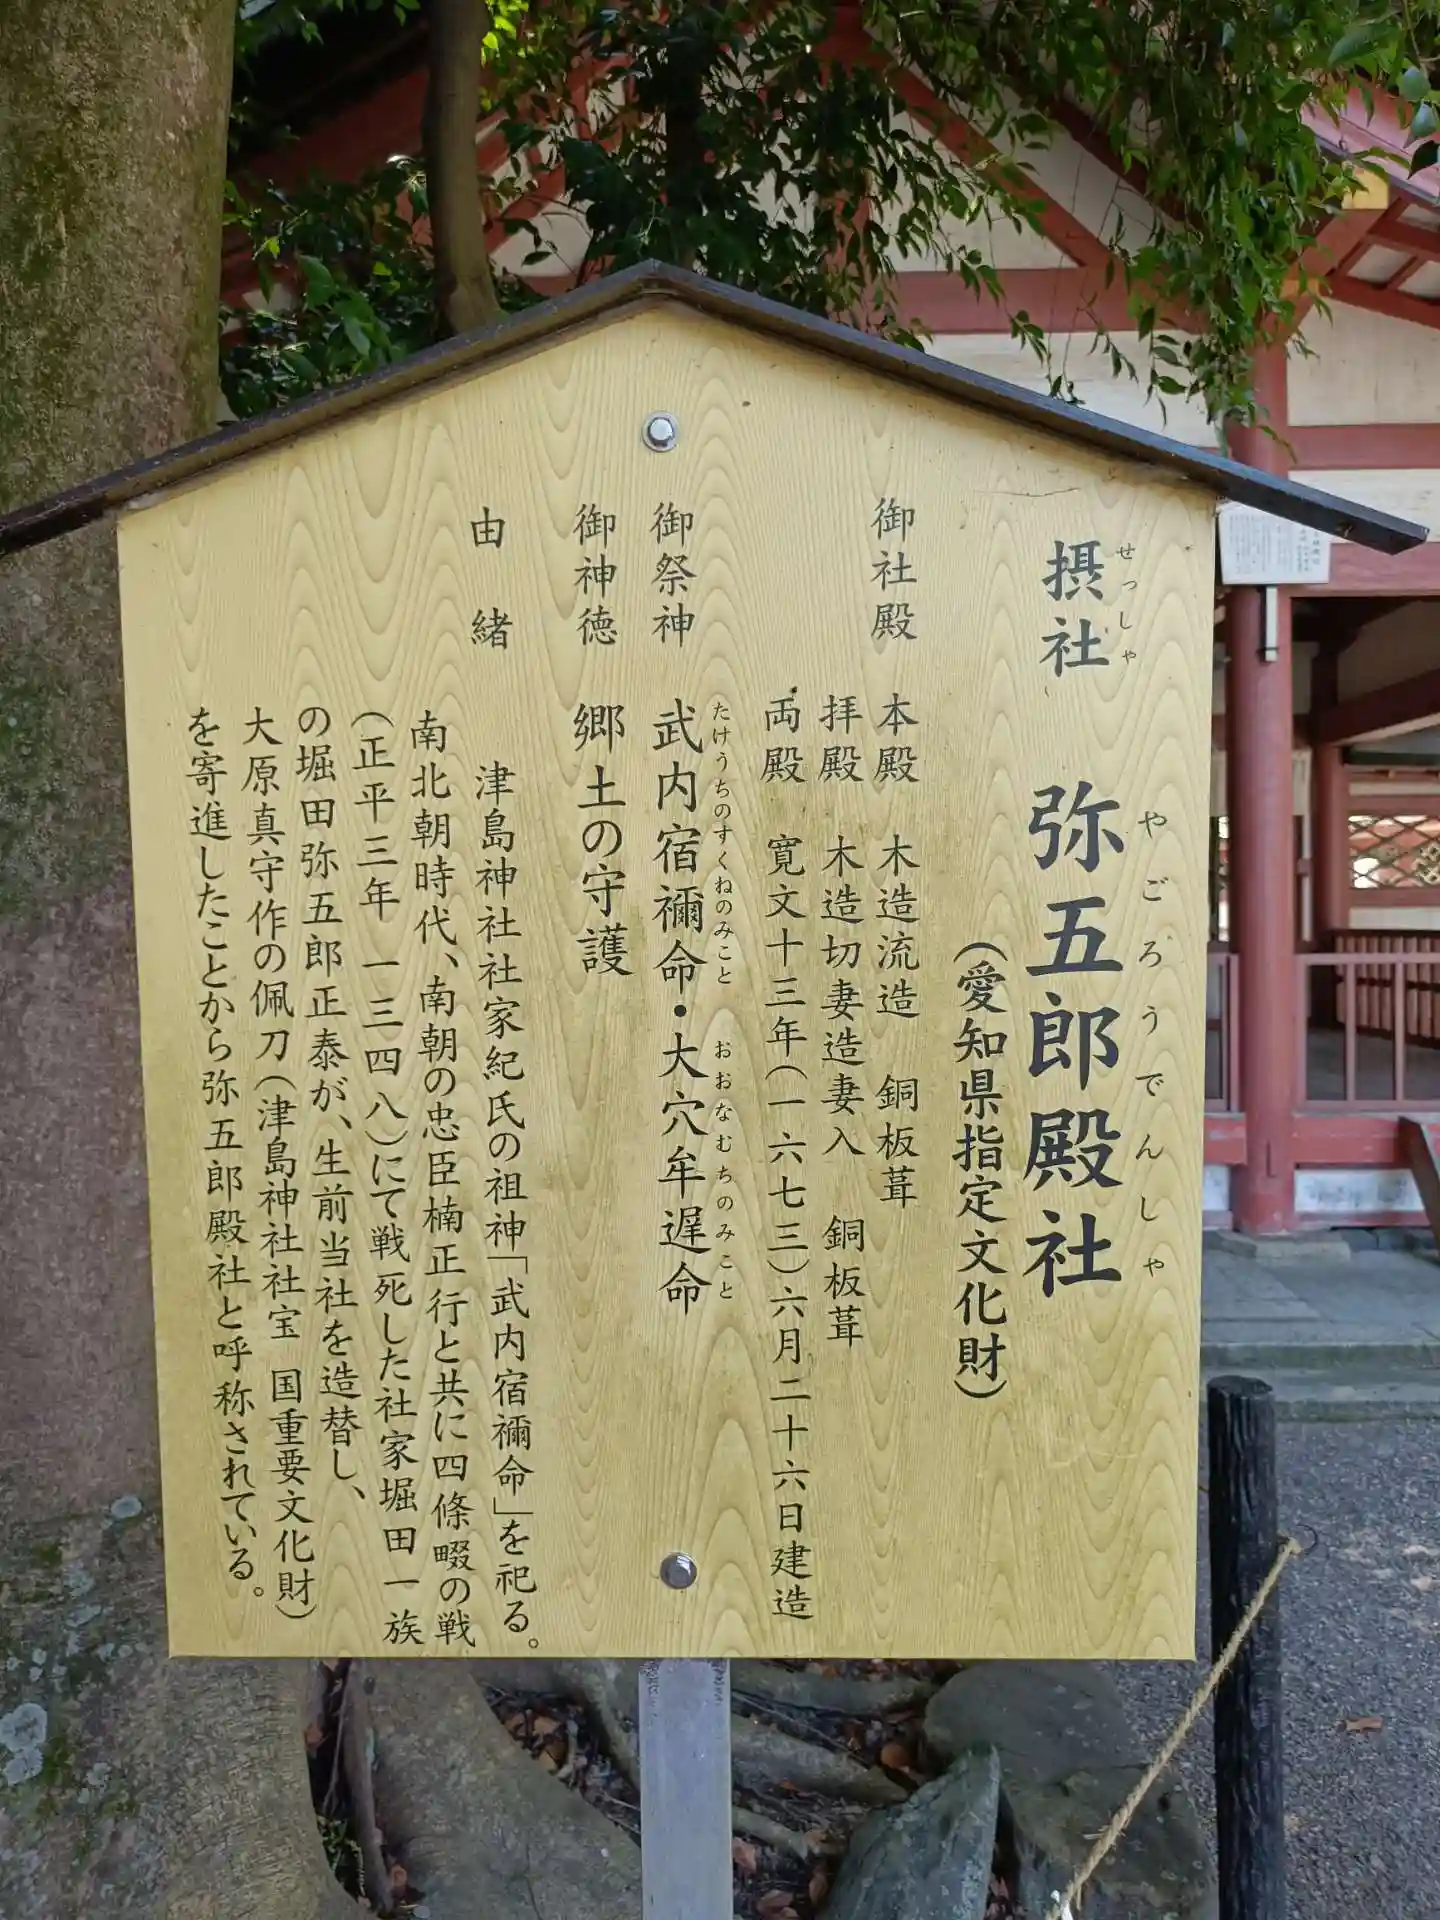 摂社 弥五郎殿社
せっしゃ やごろうでんしゃ
(愛知県指定文化財)
御社殿 本殿 木造流造 銅板葺
拝殿 木造切妻造妻入 銅板葺
両殿 寛文十三年(一六七三)六月二十六日建造
御祭神 武内宿禰命・大穴牟遅命
たけうちのすくねのみこと おおなむちのみこと
御神徳 郷土の守護
由緒 津島神社社家紀氏の祖神「武内宿禰命」を祀る。
南北朝時代、南朝の忠臣楠正行と共に四條畷の戦
(正平三年 一三四八)にて戦死した社家堀田一族
の堀田弥五郎正泰が、生前当社を造替し、
大原真守作の佩刀(津島神社社宝 国重要文化財)
を寄進したことから弥五郎殿社と呼称されている。